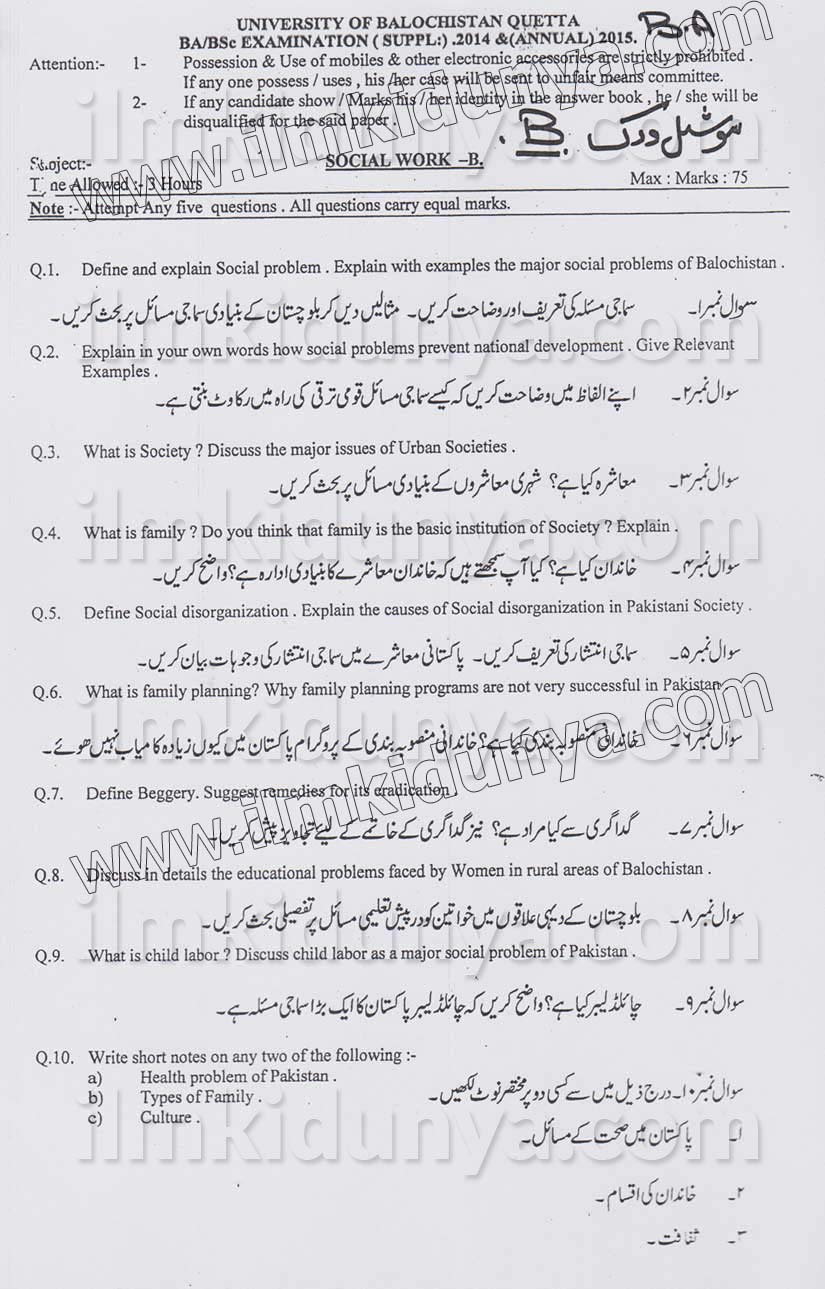 UNIVERSITY OF BALOCHISTAN QUETTA
BA/BSc EXAMINATION ( SUPPL:) .2014 &(ANNUAL) 2015.
B.A
Attention:- 1- Possession & Use of mobiles & other electronic accessories are strictly prohibited .
If any one possess / uses , his /her case will be sent to unfair means committee.
2- If any candidate show / Marks his / her identity in the answer book , he / she will be
disqualified for the said paper .
سوشل ورک B.
Subject:- SOCIAL WORK –B.
Time Allowed :- 3 Hours Max : Marks : 75
Note :- Attempt Any five questions . All questions carry equal marks.
Q.1. Define and explain Social problem . Explain with examples the major social problems of Balochistan .
سوال نمبر۱۔ سماجی مسئلہ کی تعریف اور وضاحت کریں۔ مثالیں دیں کر بلوچستان کے بنیادی سماجی مسائل پر بحث کریں۔
Q.2. Explain in your own words how social problems prevent national development . Give Relevant
Examples .
سوال نمبر۲۔ اپنے الفاظ میں وضاحت کریں کہ کیسے سماجی مسائل قومی ترقی کی راہ میں رکاوٹ بنتی ہے۔
Q.3. What is Society ? Discuss the major issues of Urban Societies .
سوال نمبر۳۔ معاشرہ کیا ہے؟ شہری معاشروں کے بنیادی مسائل پر بحث کریں۔
Q.4. What is family ? Do you think that family is the basic institution of Society ? Explain .
سوال نمبر۴۔ خاندان کیا ہے؟ کیا آپ سمجھتے ہیں کہ خاندان معاشرے کا بنیادی ادارہ ہے؟ واضح کریں۔
Q.5. Define Social disorganization . Explain the causes of Social disorganization in Pakistani Society .
سوال نمبر۵۔ سماجی انتشار کی تعریف کریں۔ پاکستانی معاشرے میں سماجی انتشار کی وجوہات بیان کریں۔
Q.6. What is family planning? Why family planning programs are not very successful in Pakistan
سوال نمبر۶۔ خاندانی منصوبہ بندی کیا ہے؟ خاندانی منصوبہ بندی کے پروگرام پاکستان میں کیوں زیادہ کامیاب نہیں ہوئے۔
Q.7. Define Beggery. Suggest remedies for its eradication .
سوال نمبر۷۔ گداگری سے کیا مراد ہے؟ نیز گداگری کے خاتمے کے لیئے تجاویز پیش کریں۔
Q.8. Discuss in details the educational problems faced by Women in rural areas of Balochistan .
سوال نمبر۸۔ بلوچستان کے دیہی علاقوں میں خواتین کو درپیش تعلیمی مسائل پر تفصیلی بحث کریں۔
Q.9. What is child labor ? Discuss child labor as a major social problem of Pakistan .
سوال نمبر۹۔ چائلڈ لیبر کیا ہے؟ واضح کریں کہ چائلڈ لیبر پاکستان کا ایک بڑا سماجی مسئلہ ہے۔
Q.10. Write short notes on any two of the following :-
a) Health problem of Pakistan .
b) Types of Family .
c) Culture .
سوال نمبر۱۰۔ درج ذیل میں سے کسی دو پر مختصر نوٹ لکھیں۔
۱۔ پاکستان میں صحت کے مسائل۔
۲۔ خاندان کی اقسام۔
۳۔ ثقافت۔
www.ilmkidunya.com
www.ilmkidunya.com
ilmkidunya.com
ilmkidunya.com
ilmkidunya.com
ilmkidunya.com
ilmkidunya.com
ilmkidunya.com